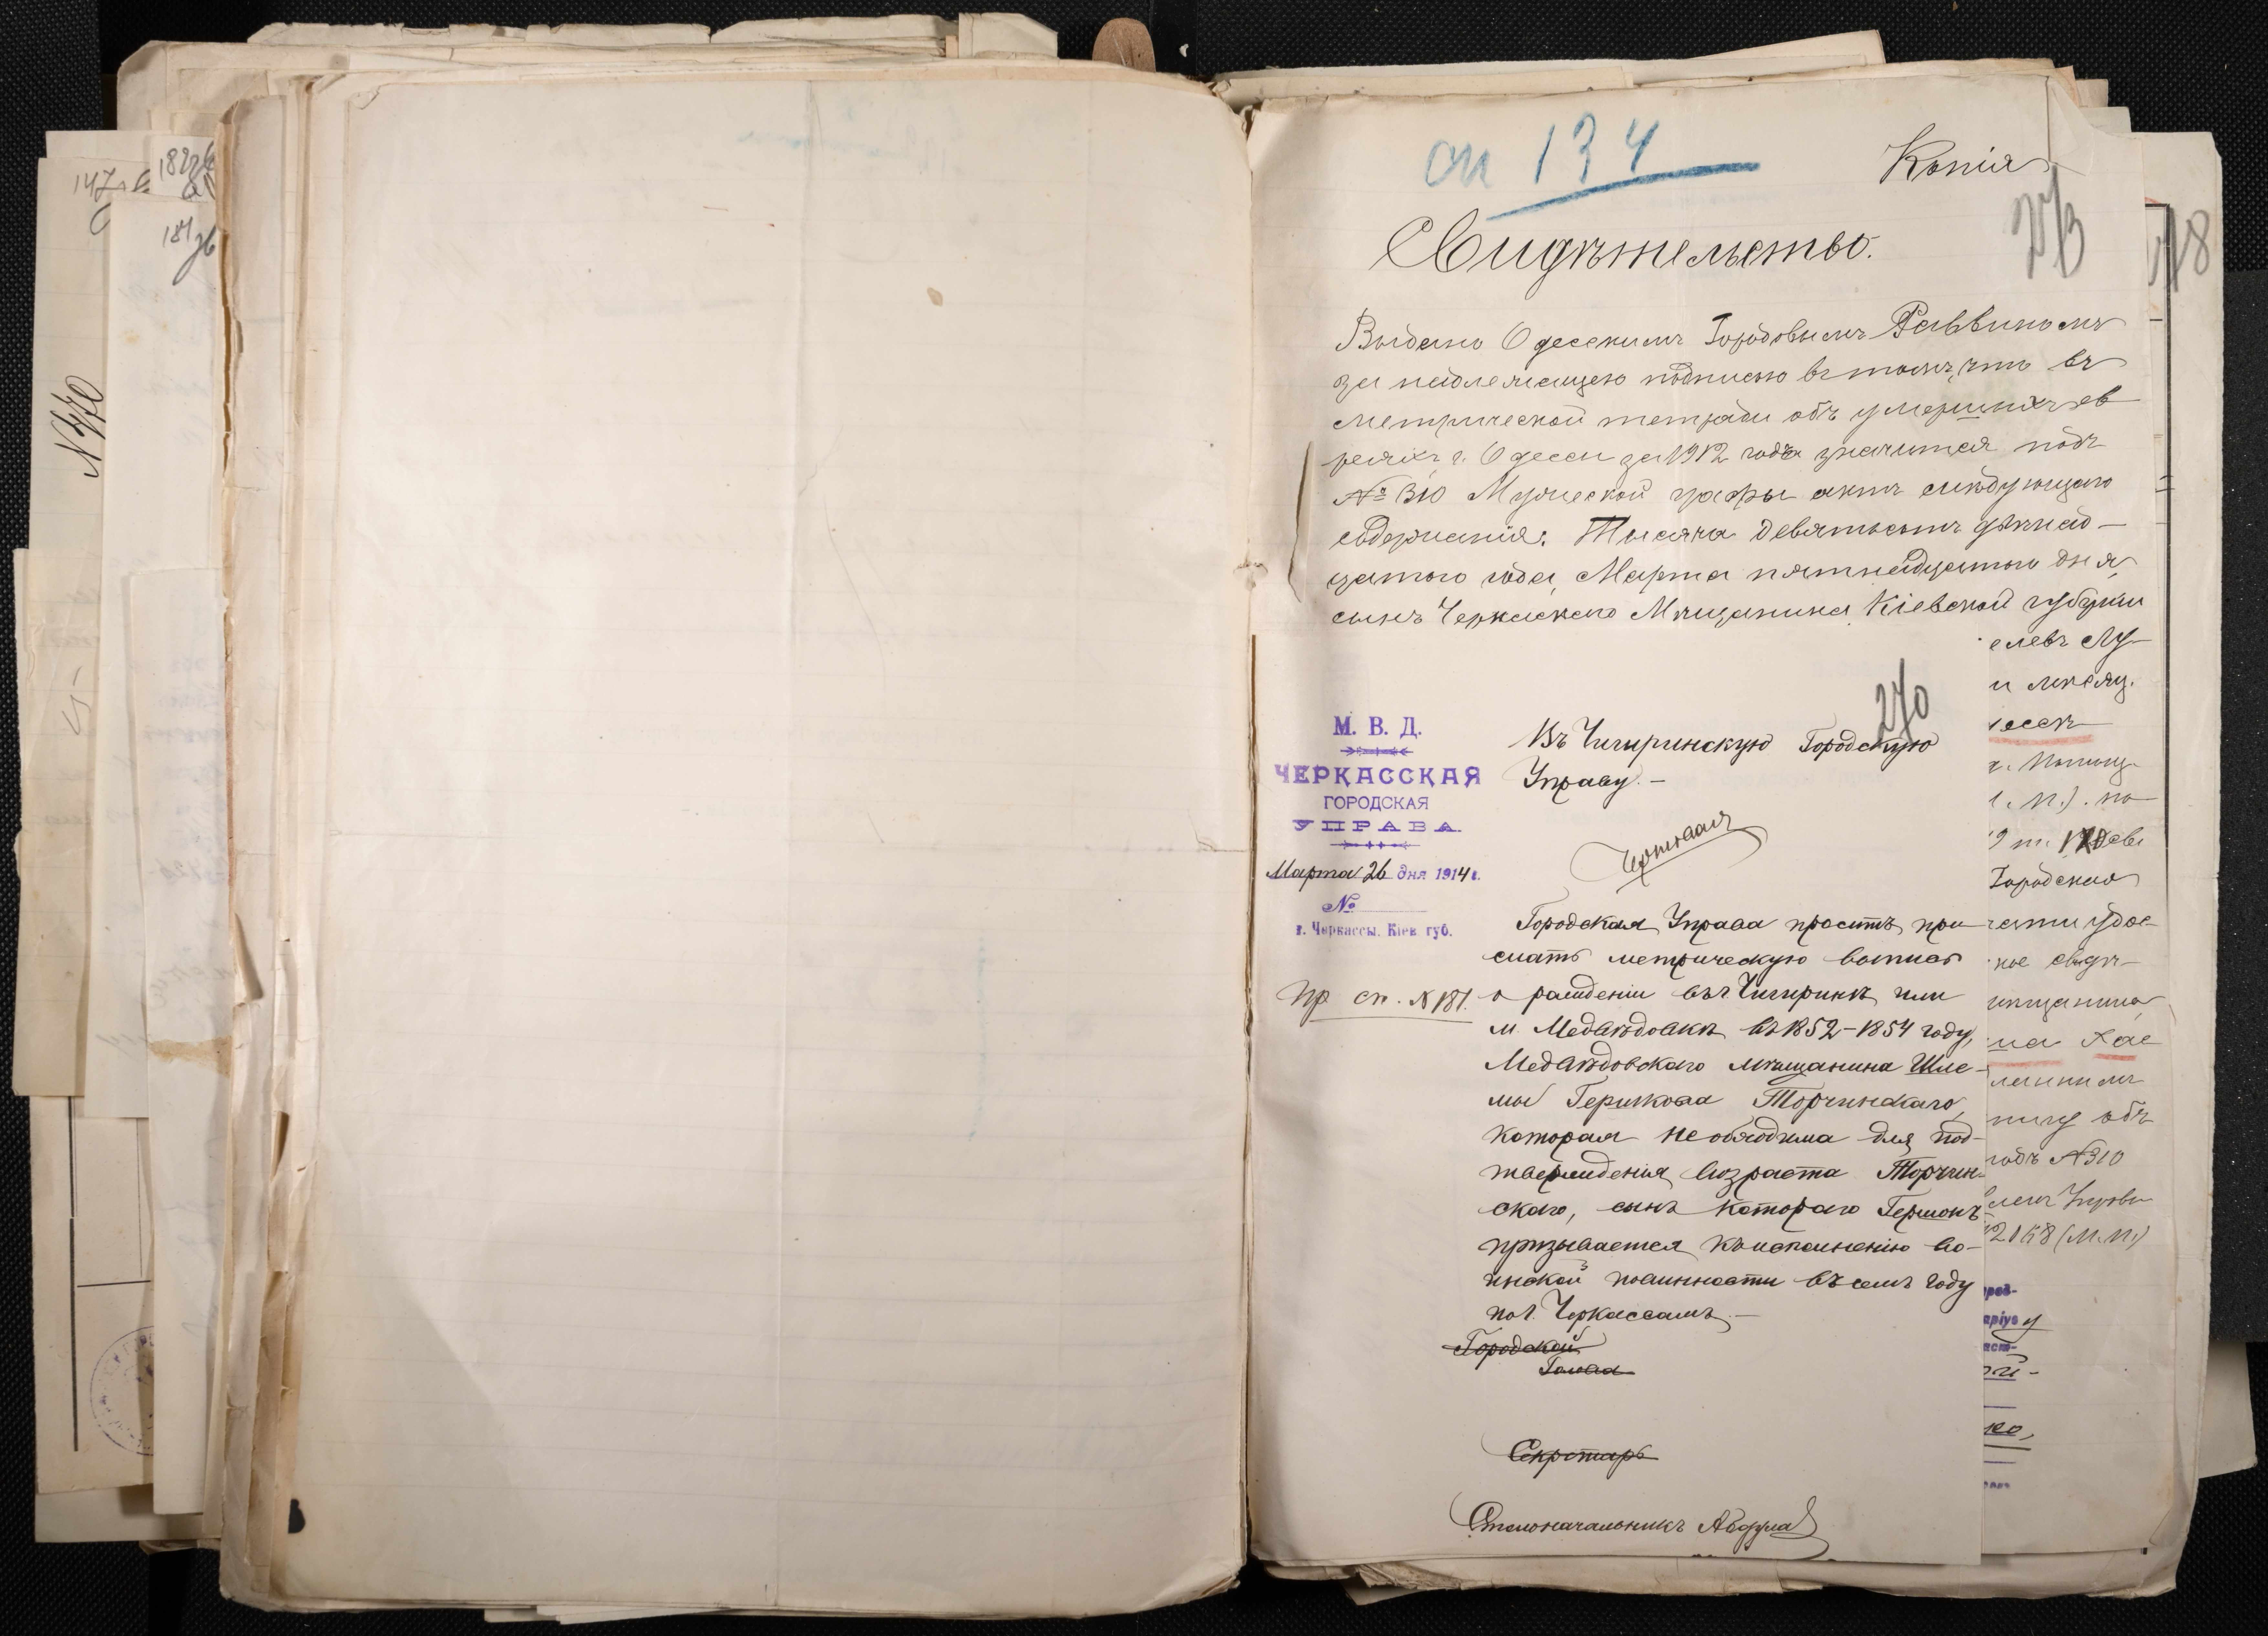 147
182
184
N 770
сп 134
Копія
273
Свидѣтельство.
Выдано Одесскимъ Городовымъ Раввиномъ
за надлежащею подписью въ томъ, что въ
метрической тетради объ умершихъ ев
реяхъ г. Одессы за 1912 годъ значится подъ
№ 310 Мужеской графы актъ слѣдующаго
содержанія: Тысяча девятьсотъ двѣнад-
цатого года, Марта пятнадцатого дня,
сынъ Черкасскаго Мѣщанина, Кіевской губерніи
елевъ Лу-
270
М. В. Д.
ЧЕРКАССКАЯ
ГОРОДСКАЯ
УПРАВА
Марта 26 дня 1914 г.
№
г. Черкассы. Кіев. губ.
Въ Чигиринскую Городскую
Управу.-
Городская Управа проситъ при-
слать метрическую выпись
Пр сп. № 181.
о рожденіи въ г. Чигиринѣ или
м. Медвѣдовкѣ въ 1852-1854 году,
Медвѣдовскаго мѣщанина Шле-
мы Гершкова Торчинскаго,
которая необходима для под-
твержденія возраста Торчин-
скаго, сынъ котораго Гершонъ
призывается къ исполненію во-
инской повинности въ семъ году
по г. Черкассамъ.-
Городской
Голова
Секретарь
Столоначальникъ
Городская
мѣщанина
на Хае
книгу объ
подъ № 310
2168 (М.П.)